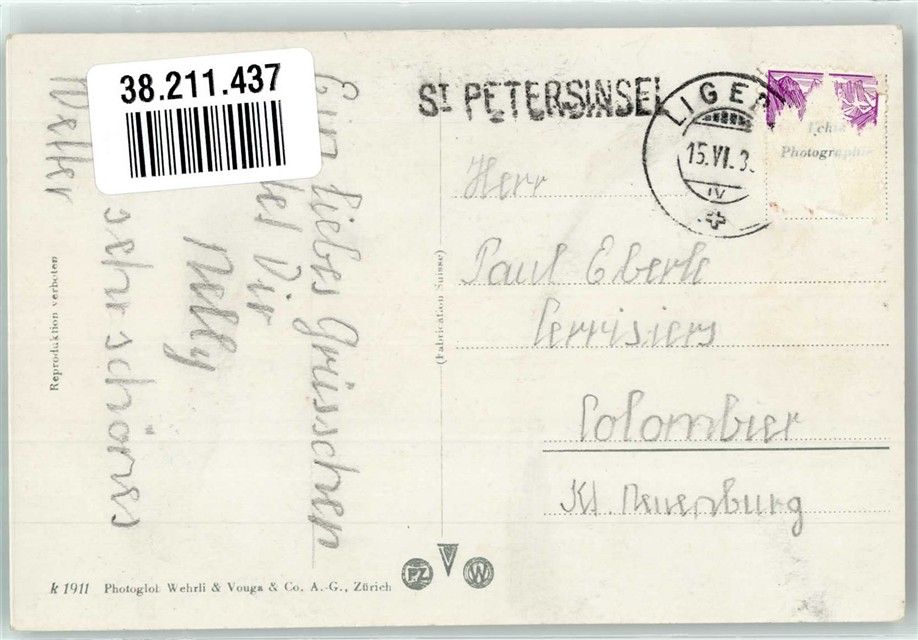 38.211.437
ST PETERSINSEL
LIGER
15.VI.3
IV
Echte
Photographie
Herr
Paul Eberle
Cerrisiers
Colombier
Kt. Neuenburg
Ein liebes Grüsschen
Dir
Nelly
sehr schönes
Wetter
Reproduktion verboten
(Fabrication Suisse)
PZ
W
k 1911 Photoglob Wehrli & Vouga & Co. A.-G., Zürich